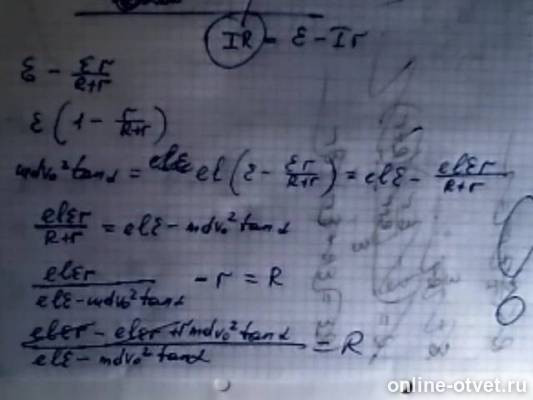 IR = ε - Ir
ε - εr/(R+r)
ε (1 - r/(R+r))
mdv₀² tanα = elε el (ε - εr/(R+r)) = elε - elεr/(R+r)
elεr/(R+r) = elε - mdv₀² tanα
elεr/(elε - mdv₀² tanα) - r = R
(elεr - elεr + r mdv₀² tanα)/(elε - mdv₀² tanα) = R
online-otvet.ru